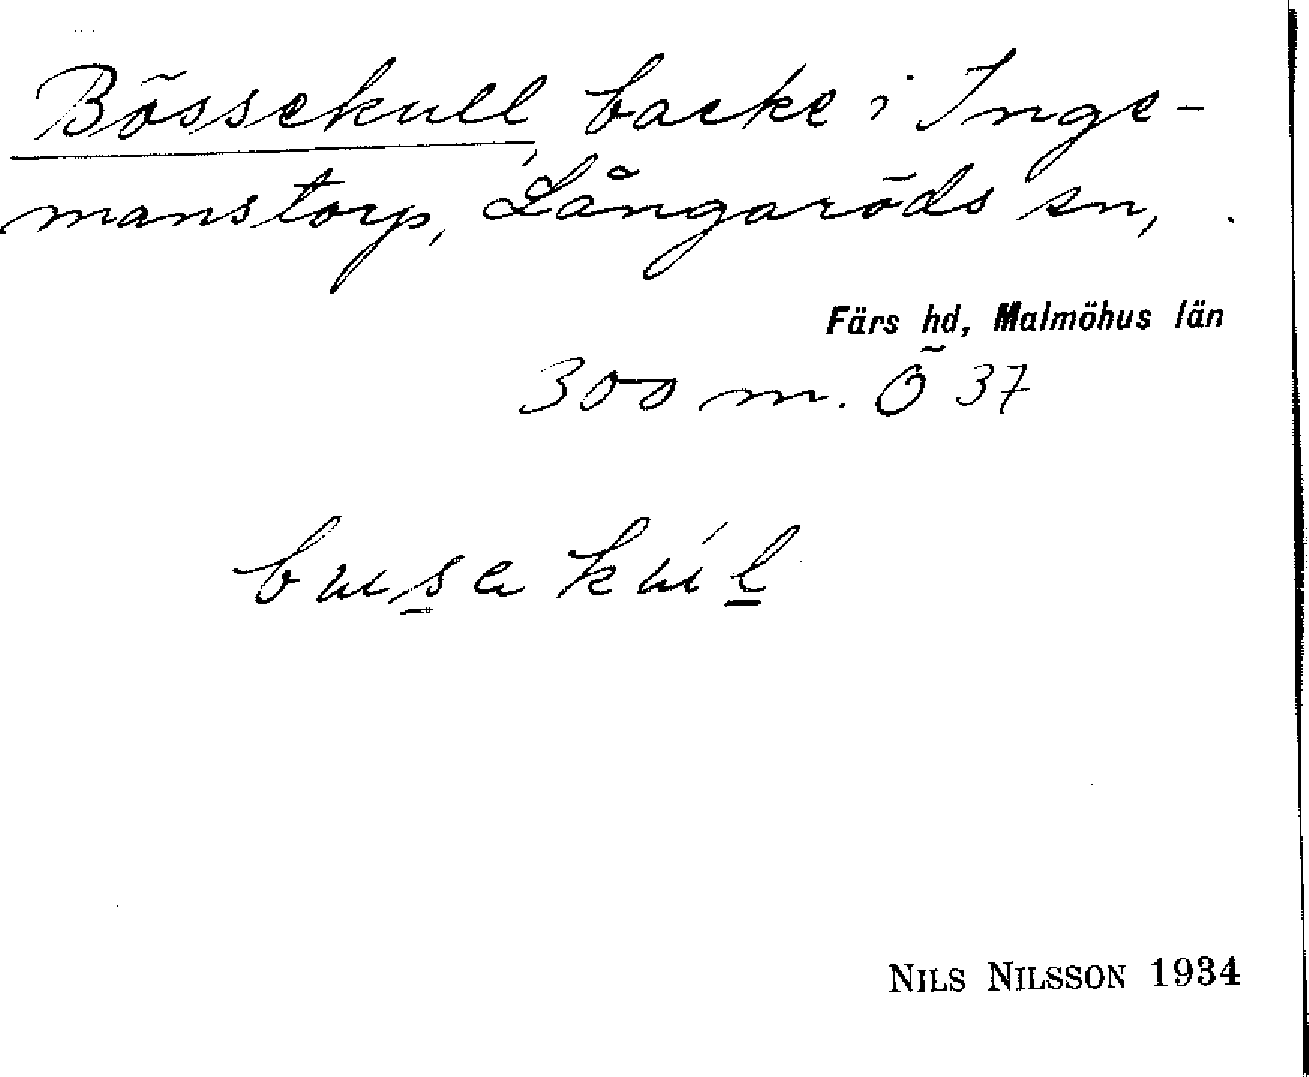 Bössekull, backe i Inge-
manstorp, Långaröds sn,
Färs hd, Malmöhus län
300 m. Ö 37
busa kúl
NILS NILSSON 1934